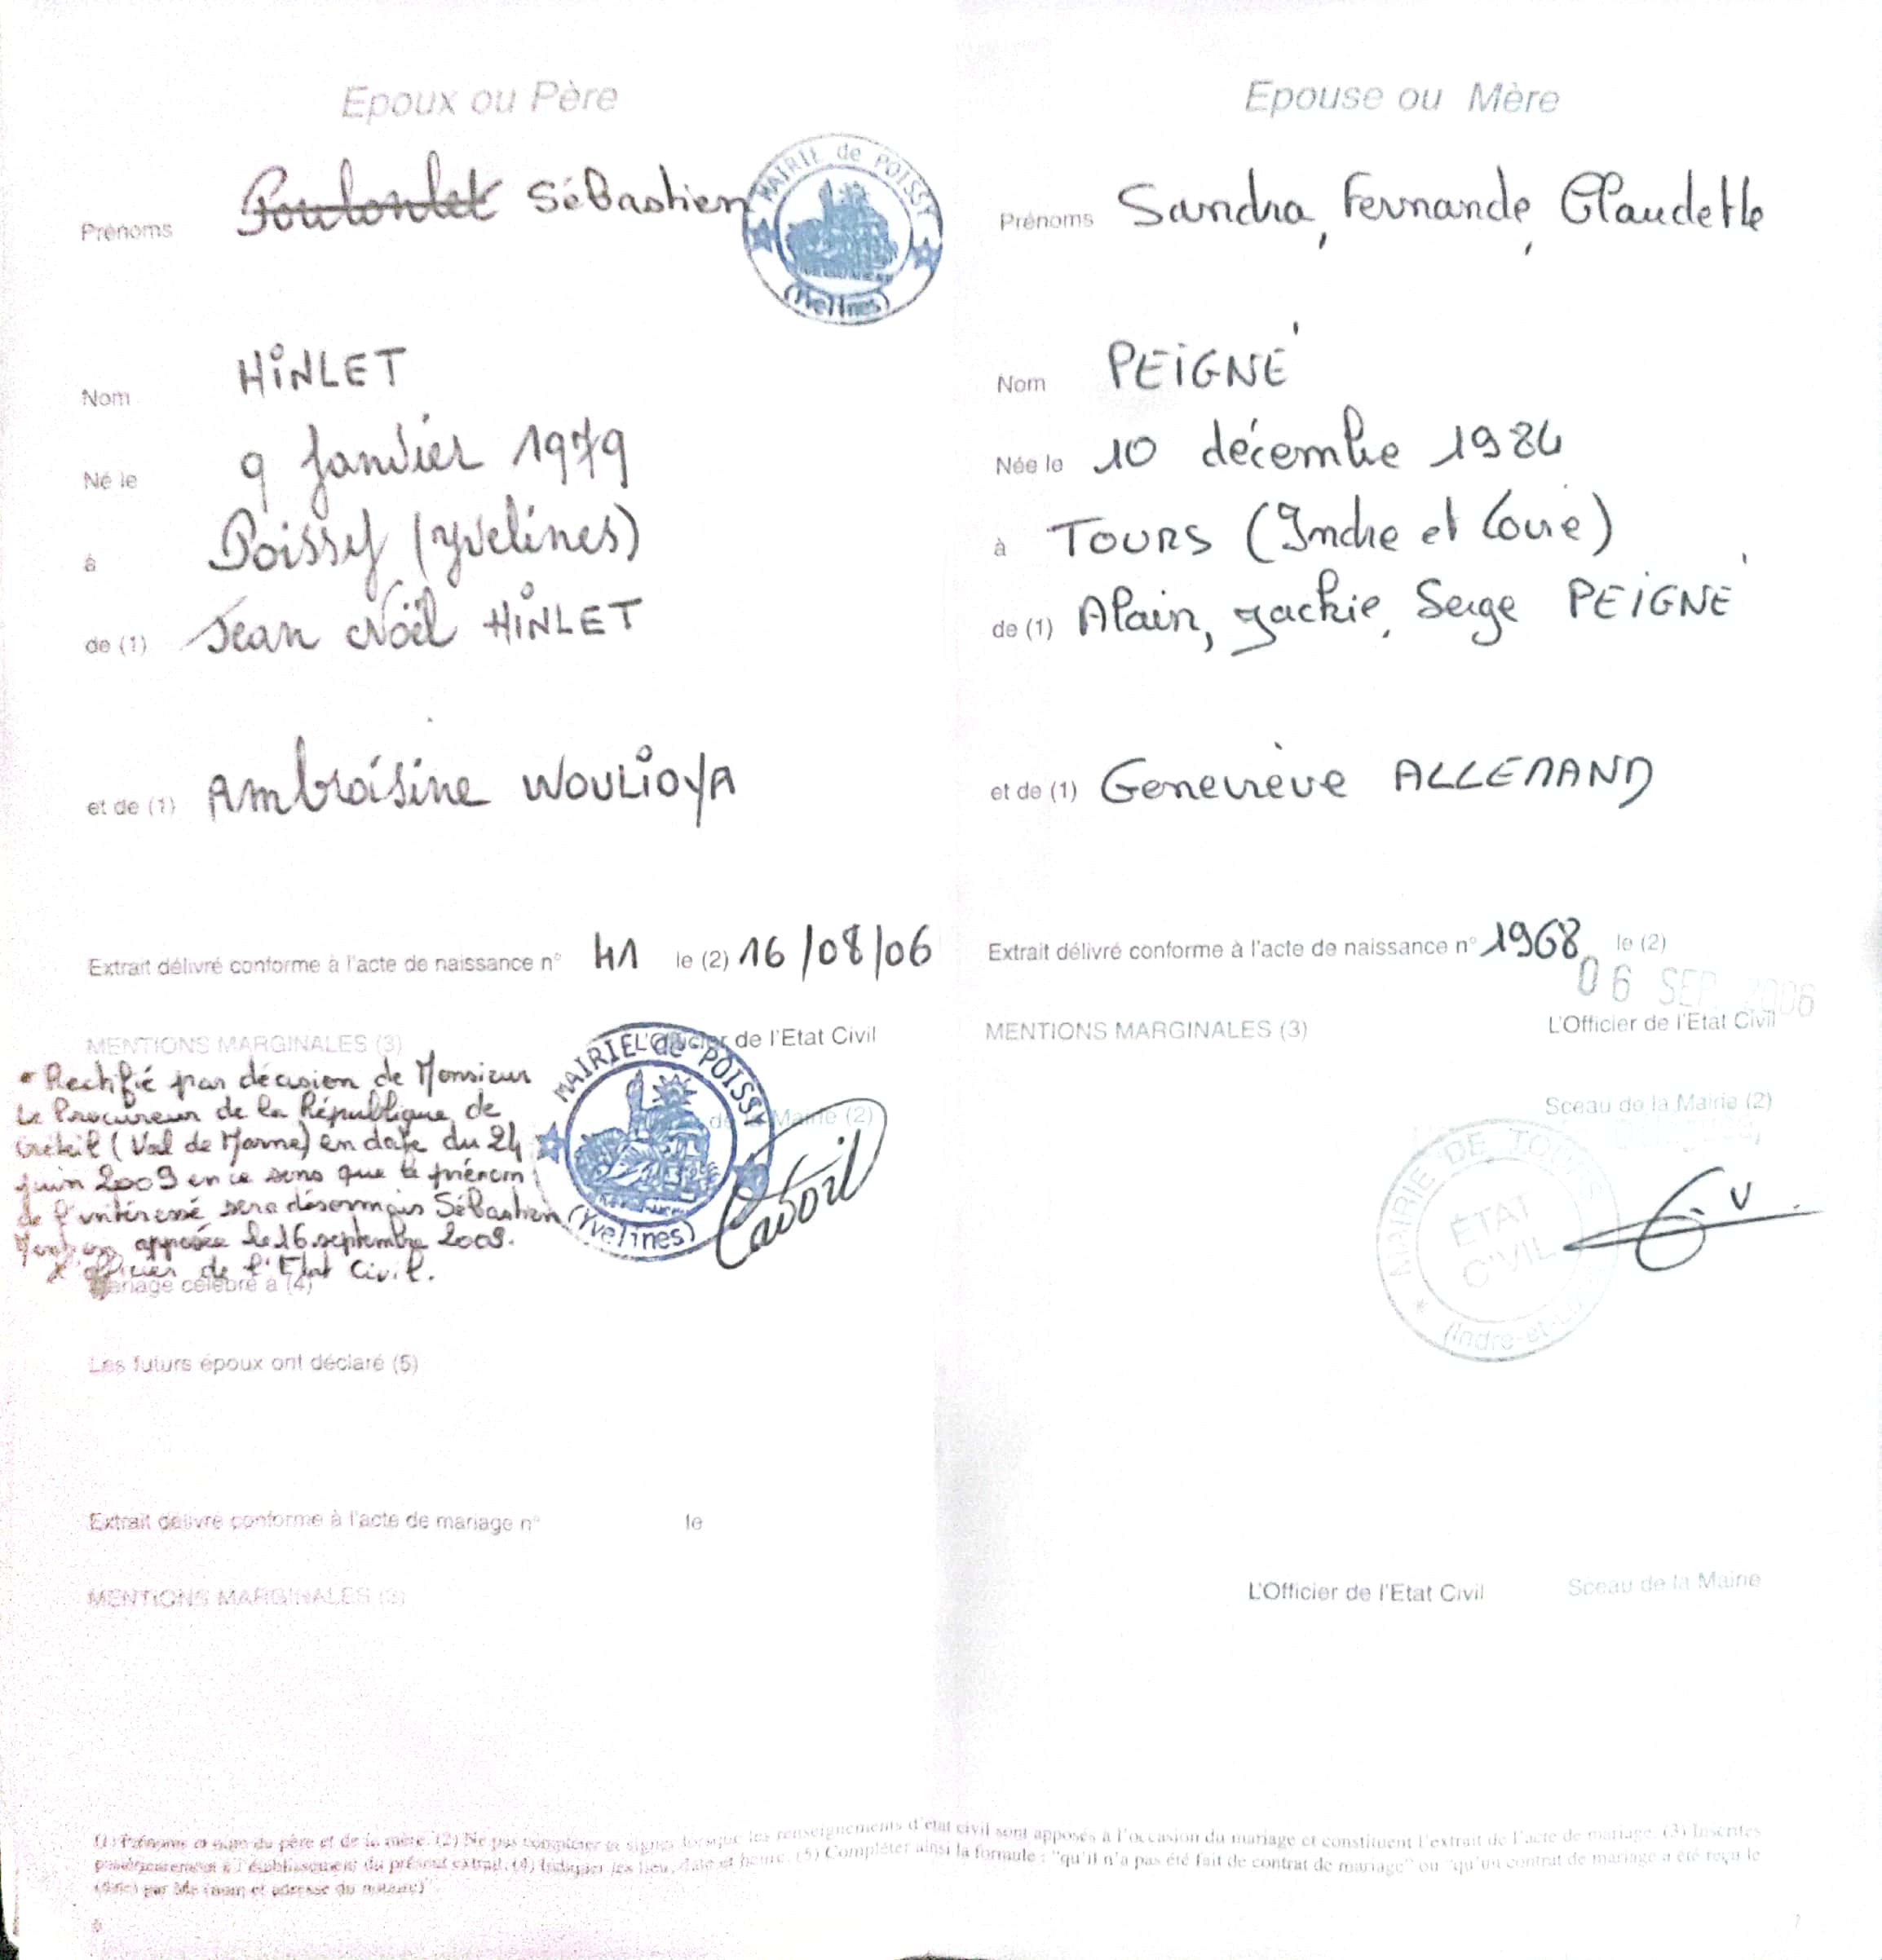 Epoux ou Père
Prénoms Sébastien
MAIRIE de POISSY
(Yvelines)
Nom HiNLET
Né le 9 Janvier 1979
à Poissy (Yvelines)
de (1) Jean Noël HiNLET
et de (1) Ambroisine WOULiOYA
Extrait délivré conforme à l'acte de naissance n° 41 le (2) 16/08/06
MENTIONS MARGINALES (3)
L'Officier de l'Etat Civil
de la Mairie (2)
MAIRIE de POISSY
(Yvelines)
Rectifié par décision de Monsieur
Le Procureur de la République de
Créteil (Val de Marne) en date du 24
juin 2009 en ce sens que le prénom
de l'intéressé sera désormais Sébastien
Mention apposée le 16 septembre 2009.
L'officier de l'Etat Civil.
Mariage célébré à (4)
Les futurs époux ont déclaré (5)
Extrait délivré conforme à l'acte de mariage n° le
MENTIONS MARGINALES (3)
Epouse ou Mère
Prénoms Sandra, Fernande, Claudette
Nom PEiGNÉ
Née le 10 décembre 1984
à TOURS (Indre et Loire)
de (1) Alain, Jackie, Serge PEiGNÉ
et de (1) Geneviève ALLEMAND
Extrait délivré conforme à l'acte de naissance n° 1968 le (2)
06 SEP. 2006
MENTIONS MARGINALES (3)
L'Officier de l'Etat Civil
Sceau de la Mairie (2)
MAIRIE DE TOURS
ÉTAT
CIVIL
L'Officier de l'Etat Civil Sceau de la Mairie
(1) Prénoms et nom du père et de la mère. (2) Ne pas compléter ni signer lorsque les renseignements d'état civil sont apposés à l'occasion du mariage et constituent l'extrait de l'acte de mariage. (3) Inscrites
postérieurement à l'établissement du présent extrait. (4) Indiquer les lieu, date et heure. (5) Compléter ainsi la formule : "qu'il n'a pas été fait de contrat de mariage" ou "qu'un contrat de mariage a été reçu le
(date) par Me (nom et adresse du notaire)"
6
7